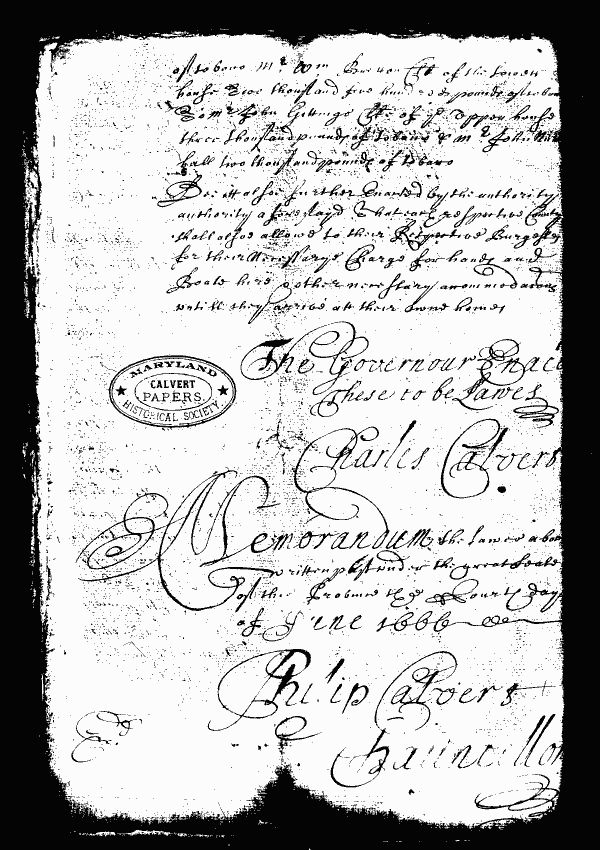 of tobacco Mr Wm Bretton Clk of the Lower
house Two thousand five hundred pounds of tobac
To mr John Gittings Clk of ye Upper house
three thousand pounds of tobacco & mr John
ball two thousand pounds of tobaco
Bee itt alsoe further Enacted by the authority
authority aforesayd That each respective County
shall alsoe allowe to their Respective Burgesses
for their Necessarye Charge for hands and
Boate hire & other necessary accommodacons
untill they arrive att their owne homes
The Governour Enact
These to be Lawes
MARYLAND
CALVERT
PAPERS.
HISTORICAL SOCIETY
Charles Calvert
Memorandum the Lawes abov
written past under the great Seale
of this Province the Fourth day
of June 1666
Philip Calvert
Chauncellor